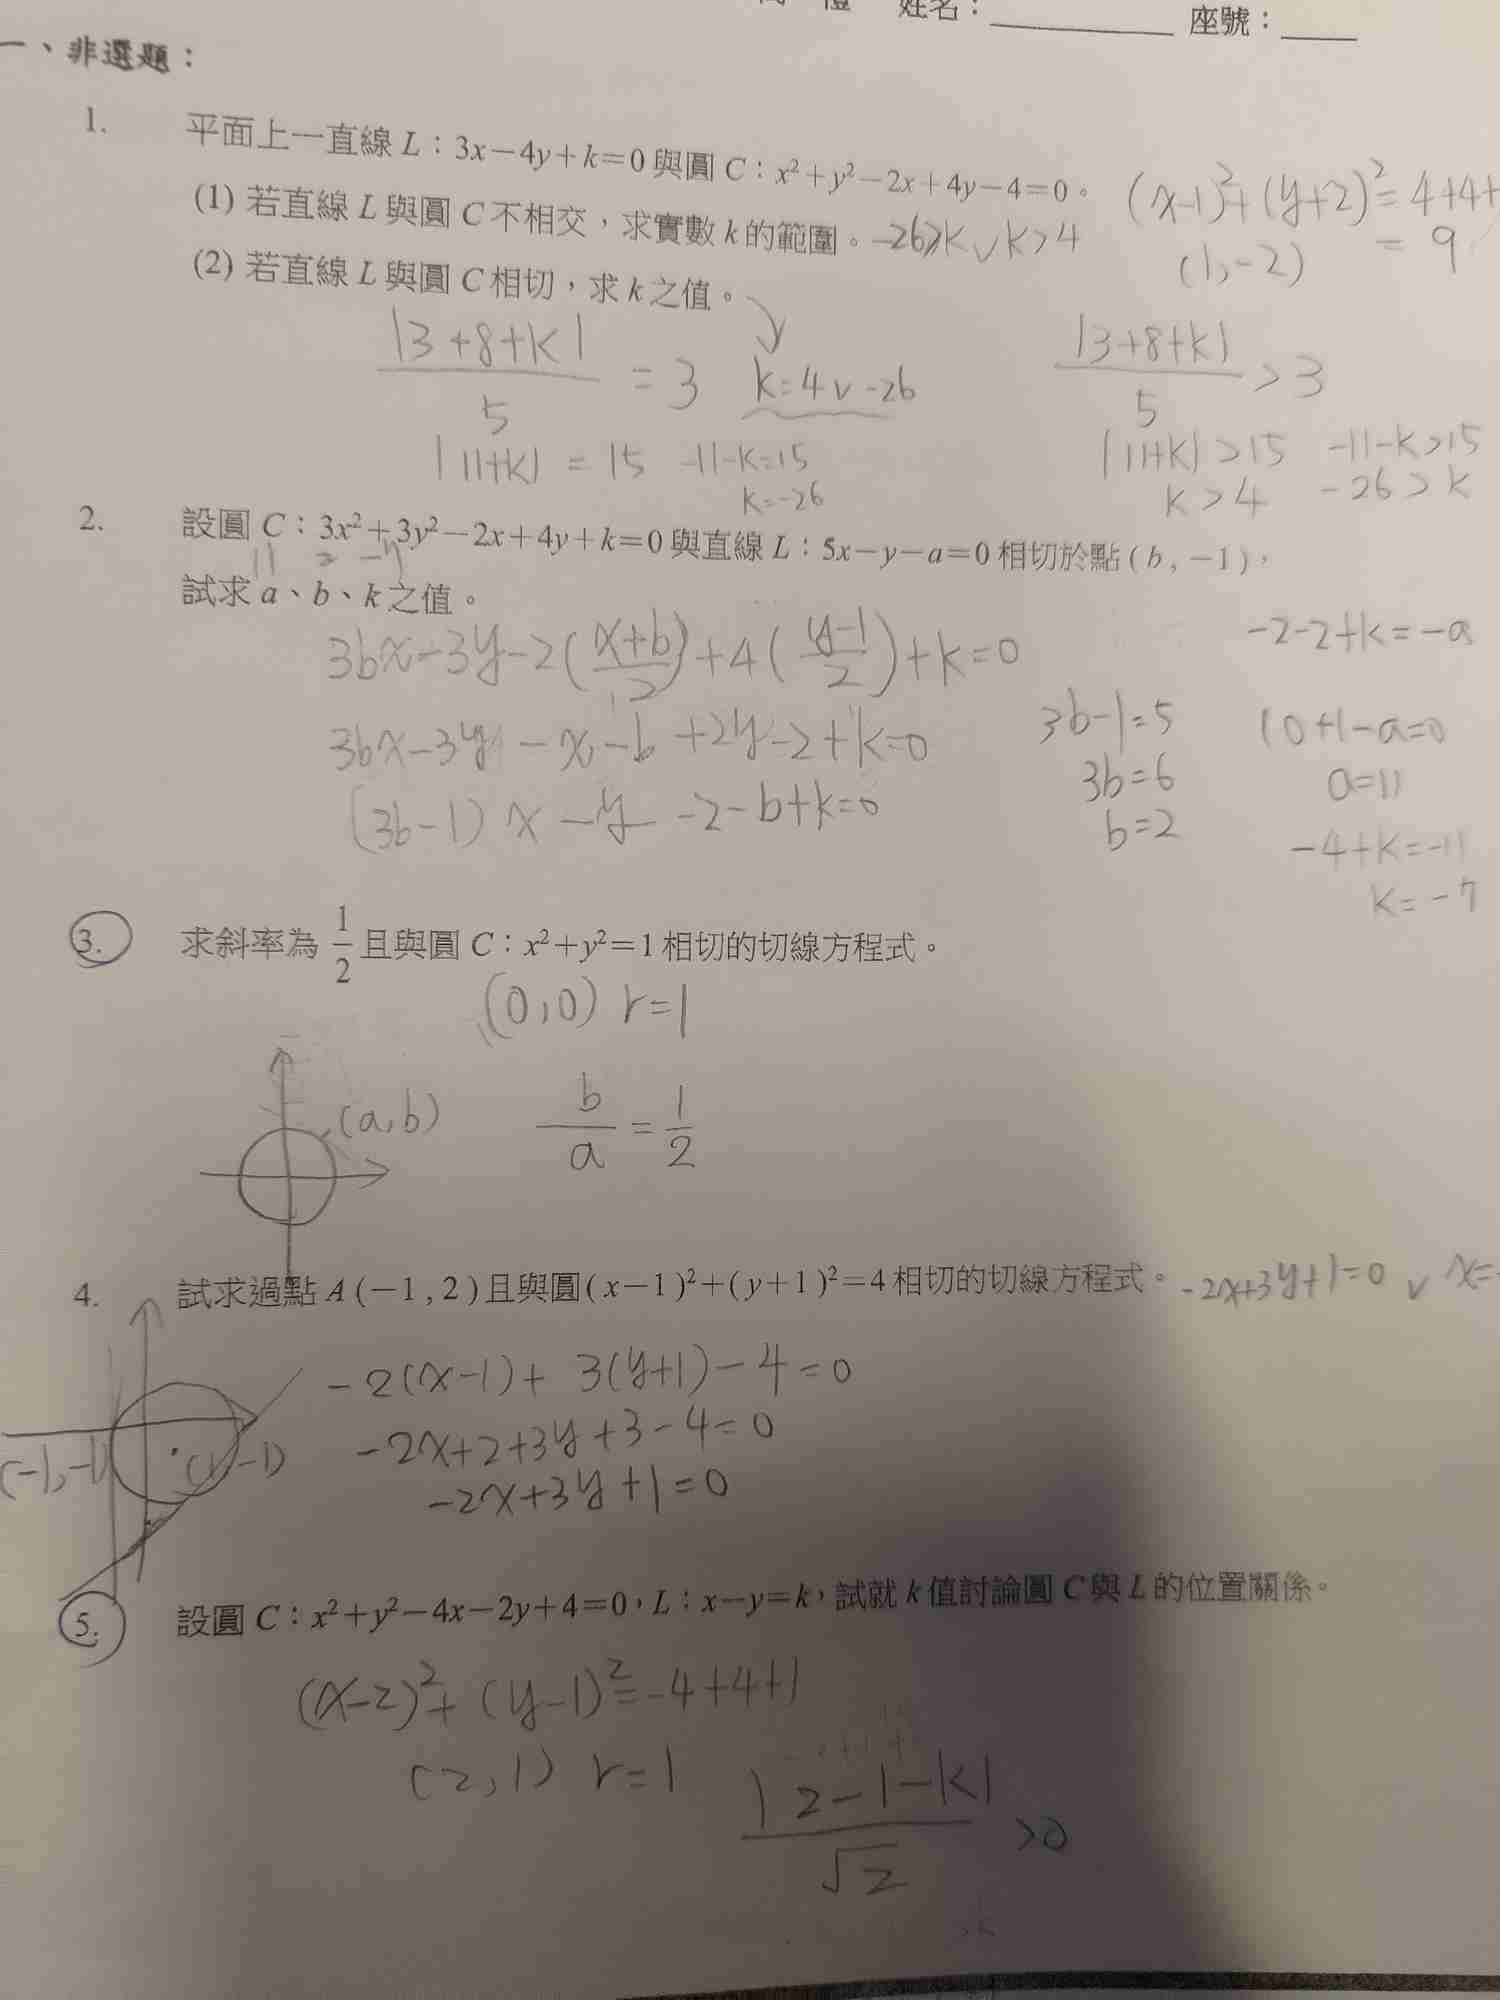 姓名：　　　座號：
一、非選題：
1. 平面上一直線 L：3x−4y+k=0 與圓 C：x²+y²−2x+4y−4=0。
(x-1)²+(y+2)²=4+4+
(1) 若直線 L 與圓 C 不相交，求實數 k 的範圍。 -26>k ∨ k>4
= 9
(1,-2)
(2) 若直線 L 與圓 C 相切，求 k 之值。
|3+8+k|/5 = 3 k=4∨-26
|3+8+k|/5 >3
|11+k| = 15 -11-k=15
k=-26
|11+k|>15 -11-k>15
k>4 -26>k
2. 設圓 C：3x²+3y²−2x+4y+k=0 與直線 L：5x−y−a=0 相切於點 (b, −1)，
11 2 -7
試求 a、b、k 之值。
3bx-3y-2((x+b)/2)+4((y-1)/2)+k=0
-2-2+k=-a
3bx-3y-x-b+2y-2+k=0
3b-1=5 10+1-a=0
3b=6 a=11
(3b-1)x-y-2-b+k=0
b=2 -4+k=-11
k=-7
3. 求斜率為 1/2 且與圓 C：x²+y²=1 相切的切線方程式。
(0,0) r=1
(a,b) b/a = 1/2
4. 試求過點 A (−1, 2) 且與圓 (x−1)²+(y+1)²=4 相切的切線方程式。 -2x+3y+1=0 ∨ x=
-2(x-1)+3(y+1)-4=0
-2x+2+3y+3-4=0
(-1,-1) (1,-1)
-2x+3y+1=0
5. 設圓 C：x²+y²−4x−2y+4=0，L：x−y=k，試就 k 值討論圓 C 與 L 的位置關係。
(x-2)²+(y-1)²=-4+4+1
(2,1) r=1 |2-1-k|/√2 >0